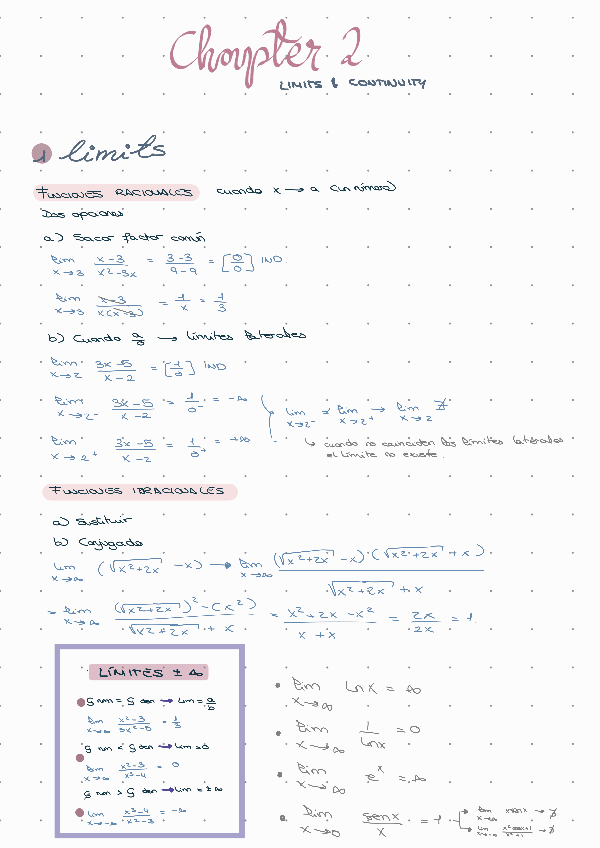 Chapter 2
LIMITS & CONTINUITY
1 limits
FUNCIONES RACIONALES cuando x → a (un número)
Dos opciones
a) Sacar factor común
lim x→3 x-3 / x²-3x = 3-3 / 9-9 = [0/0] IND
lim x→3 x-3 / x(x-3) = 1/x = 1/3
b) Cuando a/0 → límites laterales
lim x→2 3x-5 / x-2 = [1/0] IND
lim x→2⁻ 3x-5 / x-2 = 1/0⁻ = -∞
lim x→2⁻ ≠ lim x→2⁺ → lim x→2 ∄
lim x→2⁺ 3x-5 / x-2 = 1/0⁺ = +∞
↳ cuando no coinciden los límites laterales
el límite no existe.
FUNCIONES IRRACIONALES
a) Sustituir
b) Conjugado
lim x→∞ (√x²+2x - x) → lim x→∞ (√x²+2x - x)·(√x²+2x + x) / √x²+2x + x
= lim x→∞ (√x²+2x)² - (x²) / √x²+2x + x = x²+2x-x² / x+x = 2x/2x = 1
LÍMITES ± ∞
G num = G den → lim = a/b
lim x→∞ x²-3 / 3x²-5 = 1/3
G num < G den → lim = 0
lim x→∞ x²-3 / x³-4 = 0
G num > G den → lim = ± ∞
lim x→-∞ x³-4 / x²-3 = -∞
• lim x→∞ lnx = ∞
• lim x→∞ 1/lnx = 0
• lim x→∞ eˣ = ∞
• lim x→0 senx / x = 1